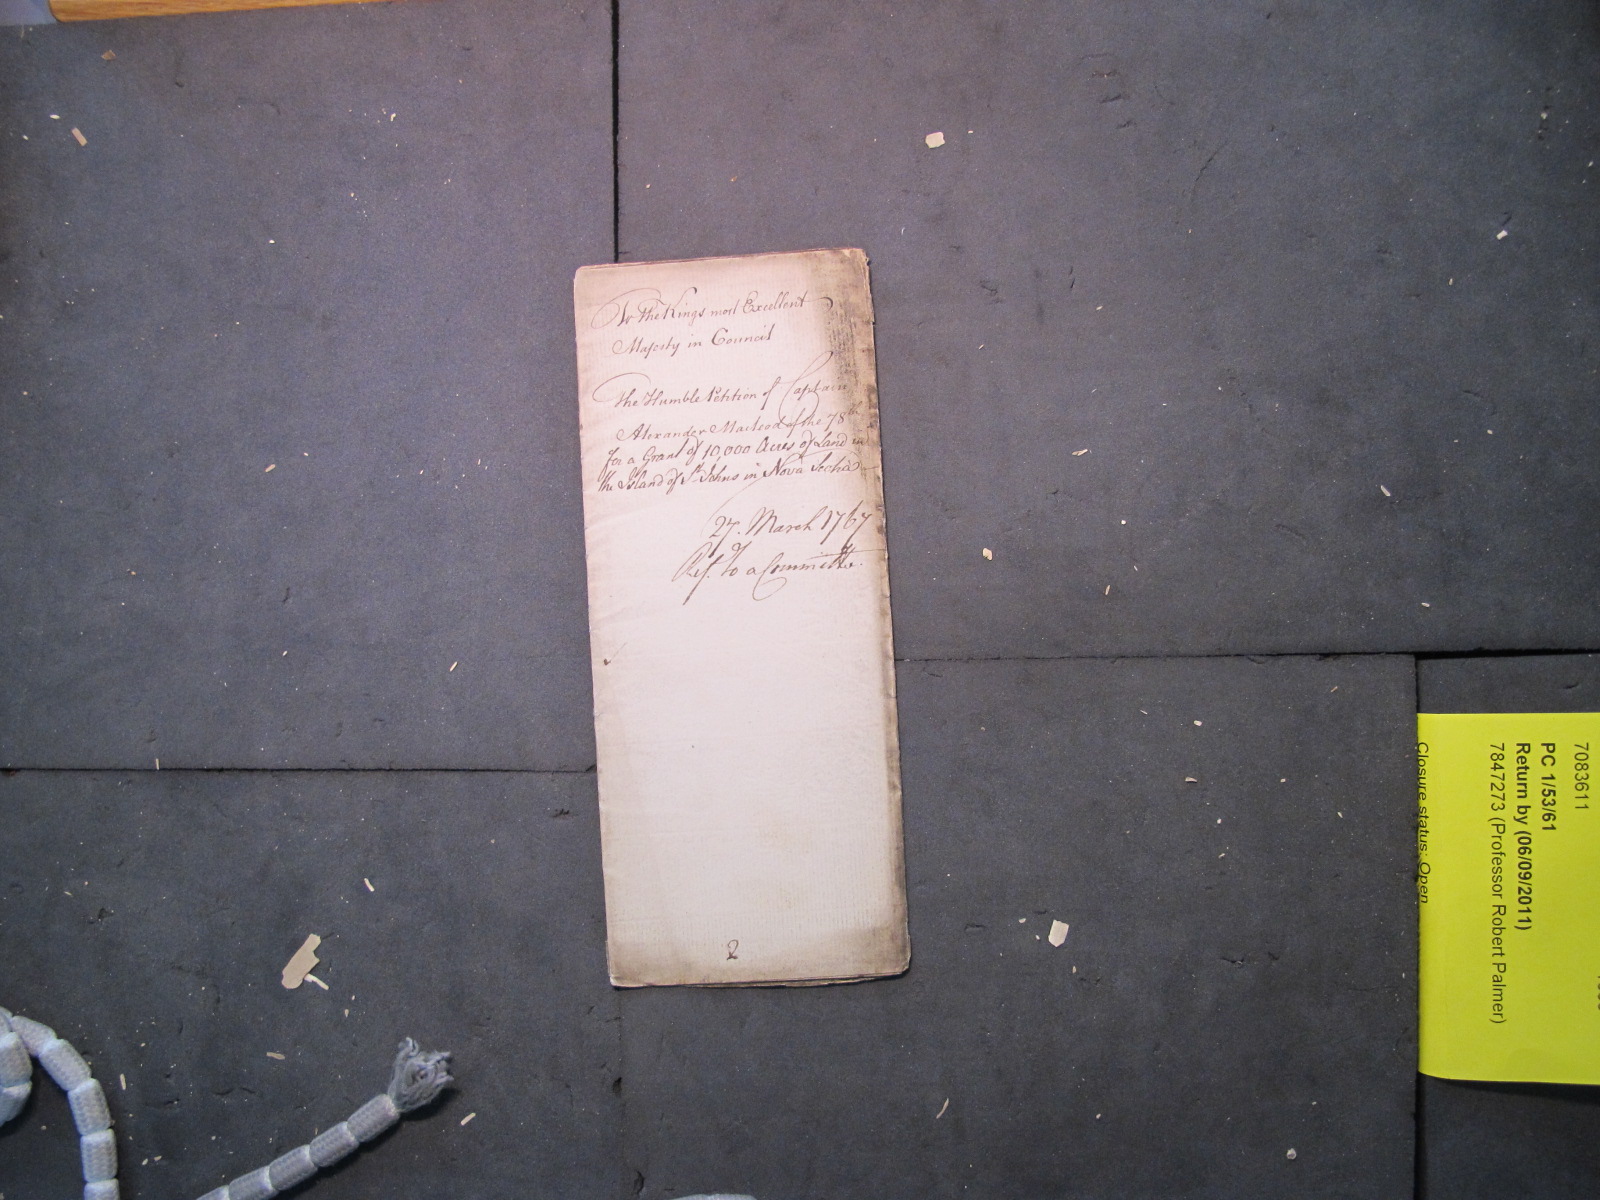 To The Kings most Excellent
Majesty in Council
The Humble Petition of Captain
Alexander Macleod of the 78th
for a Grant of 10,000 Acres of Land in
the Island of St. Johns in Nova Scotia
27. March 1767
Ref. to a Committee.
2
7083611
PC 1/53/61
Return by (06/09/2011)
7847273 (Professor Robert Palmer)
Closure status: Open